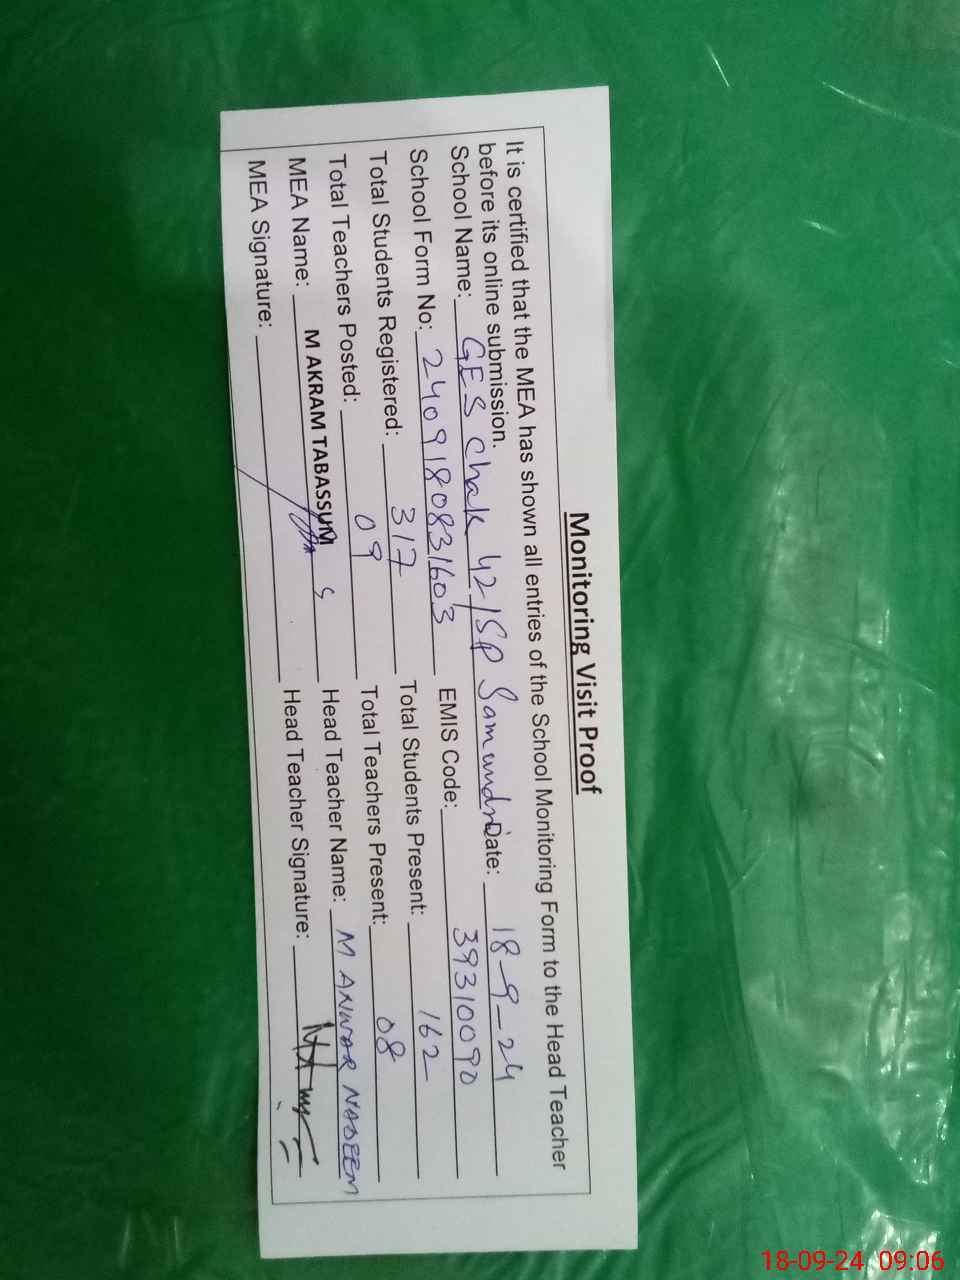 Monitoring Visit Proof
It is certified that the MEA has shown all entries of the School Monitoring Form to the Head Teacher
before its online submission.
School Name: GES Chak 42/SP Samundri Date: 18-9-24
School Form No: 2409180831603 EMIS Code: 39310090
Total Students Registered: 317 Total Students Present: 162
Total Teachers Posted: 09 Total Teachers Present: 08
MEA Name: M AKRAM TABASSUM Head Teacher Name: M ANWAR NADEEM
MEA Signature: Head Teacher Signature:
18-09-24 09:06